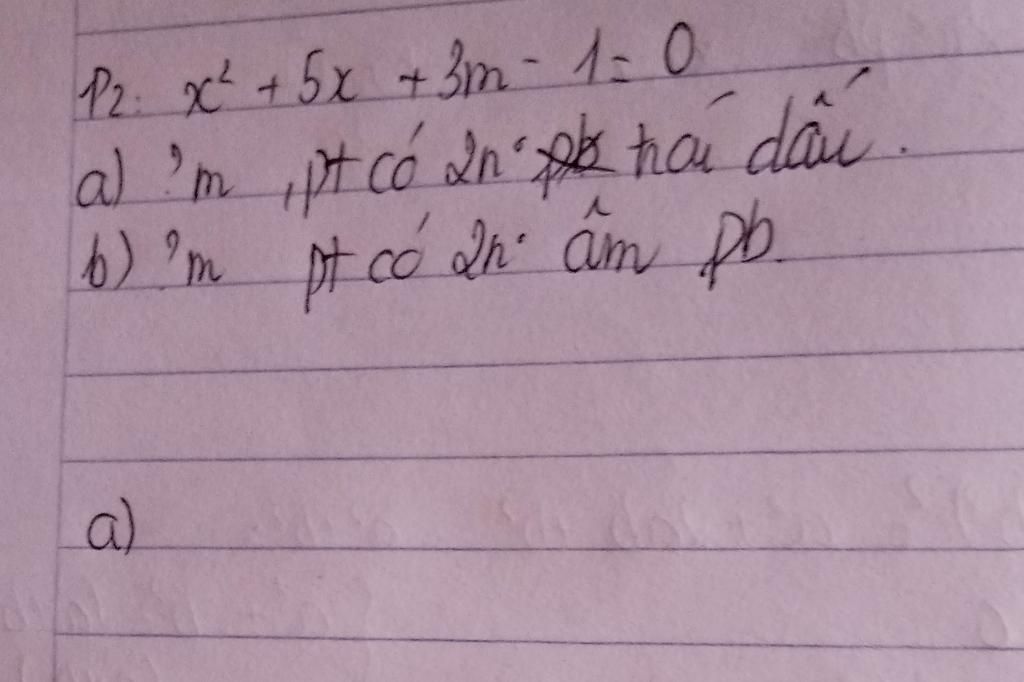 P2: x² + 5x + 3m - 1 = 0
a) ?m , pt có 2n° trái dấu.
b) ?m pt có 2n° âm pb.
a)